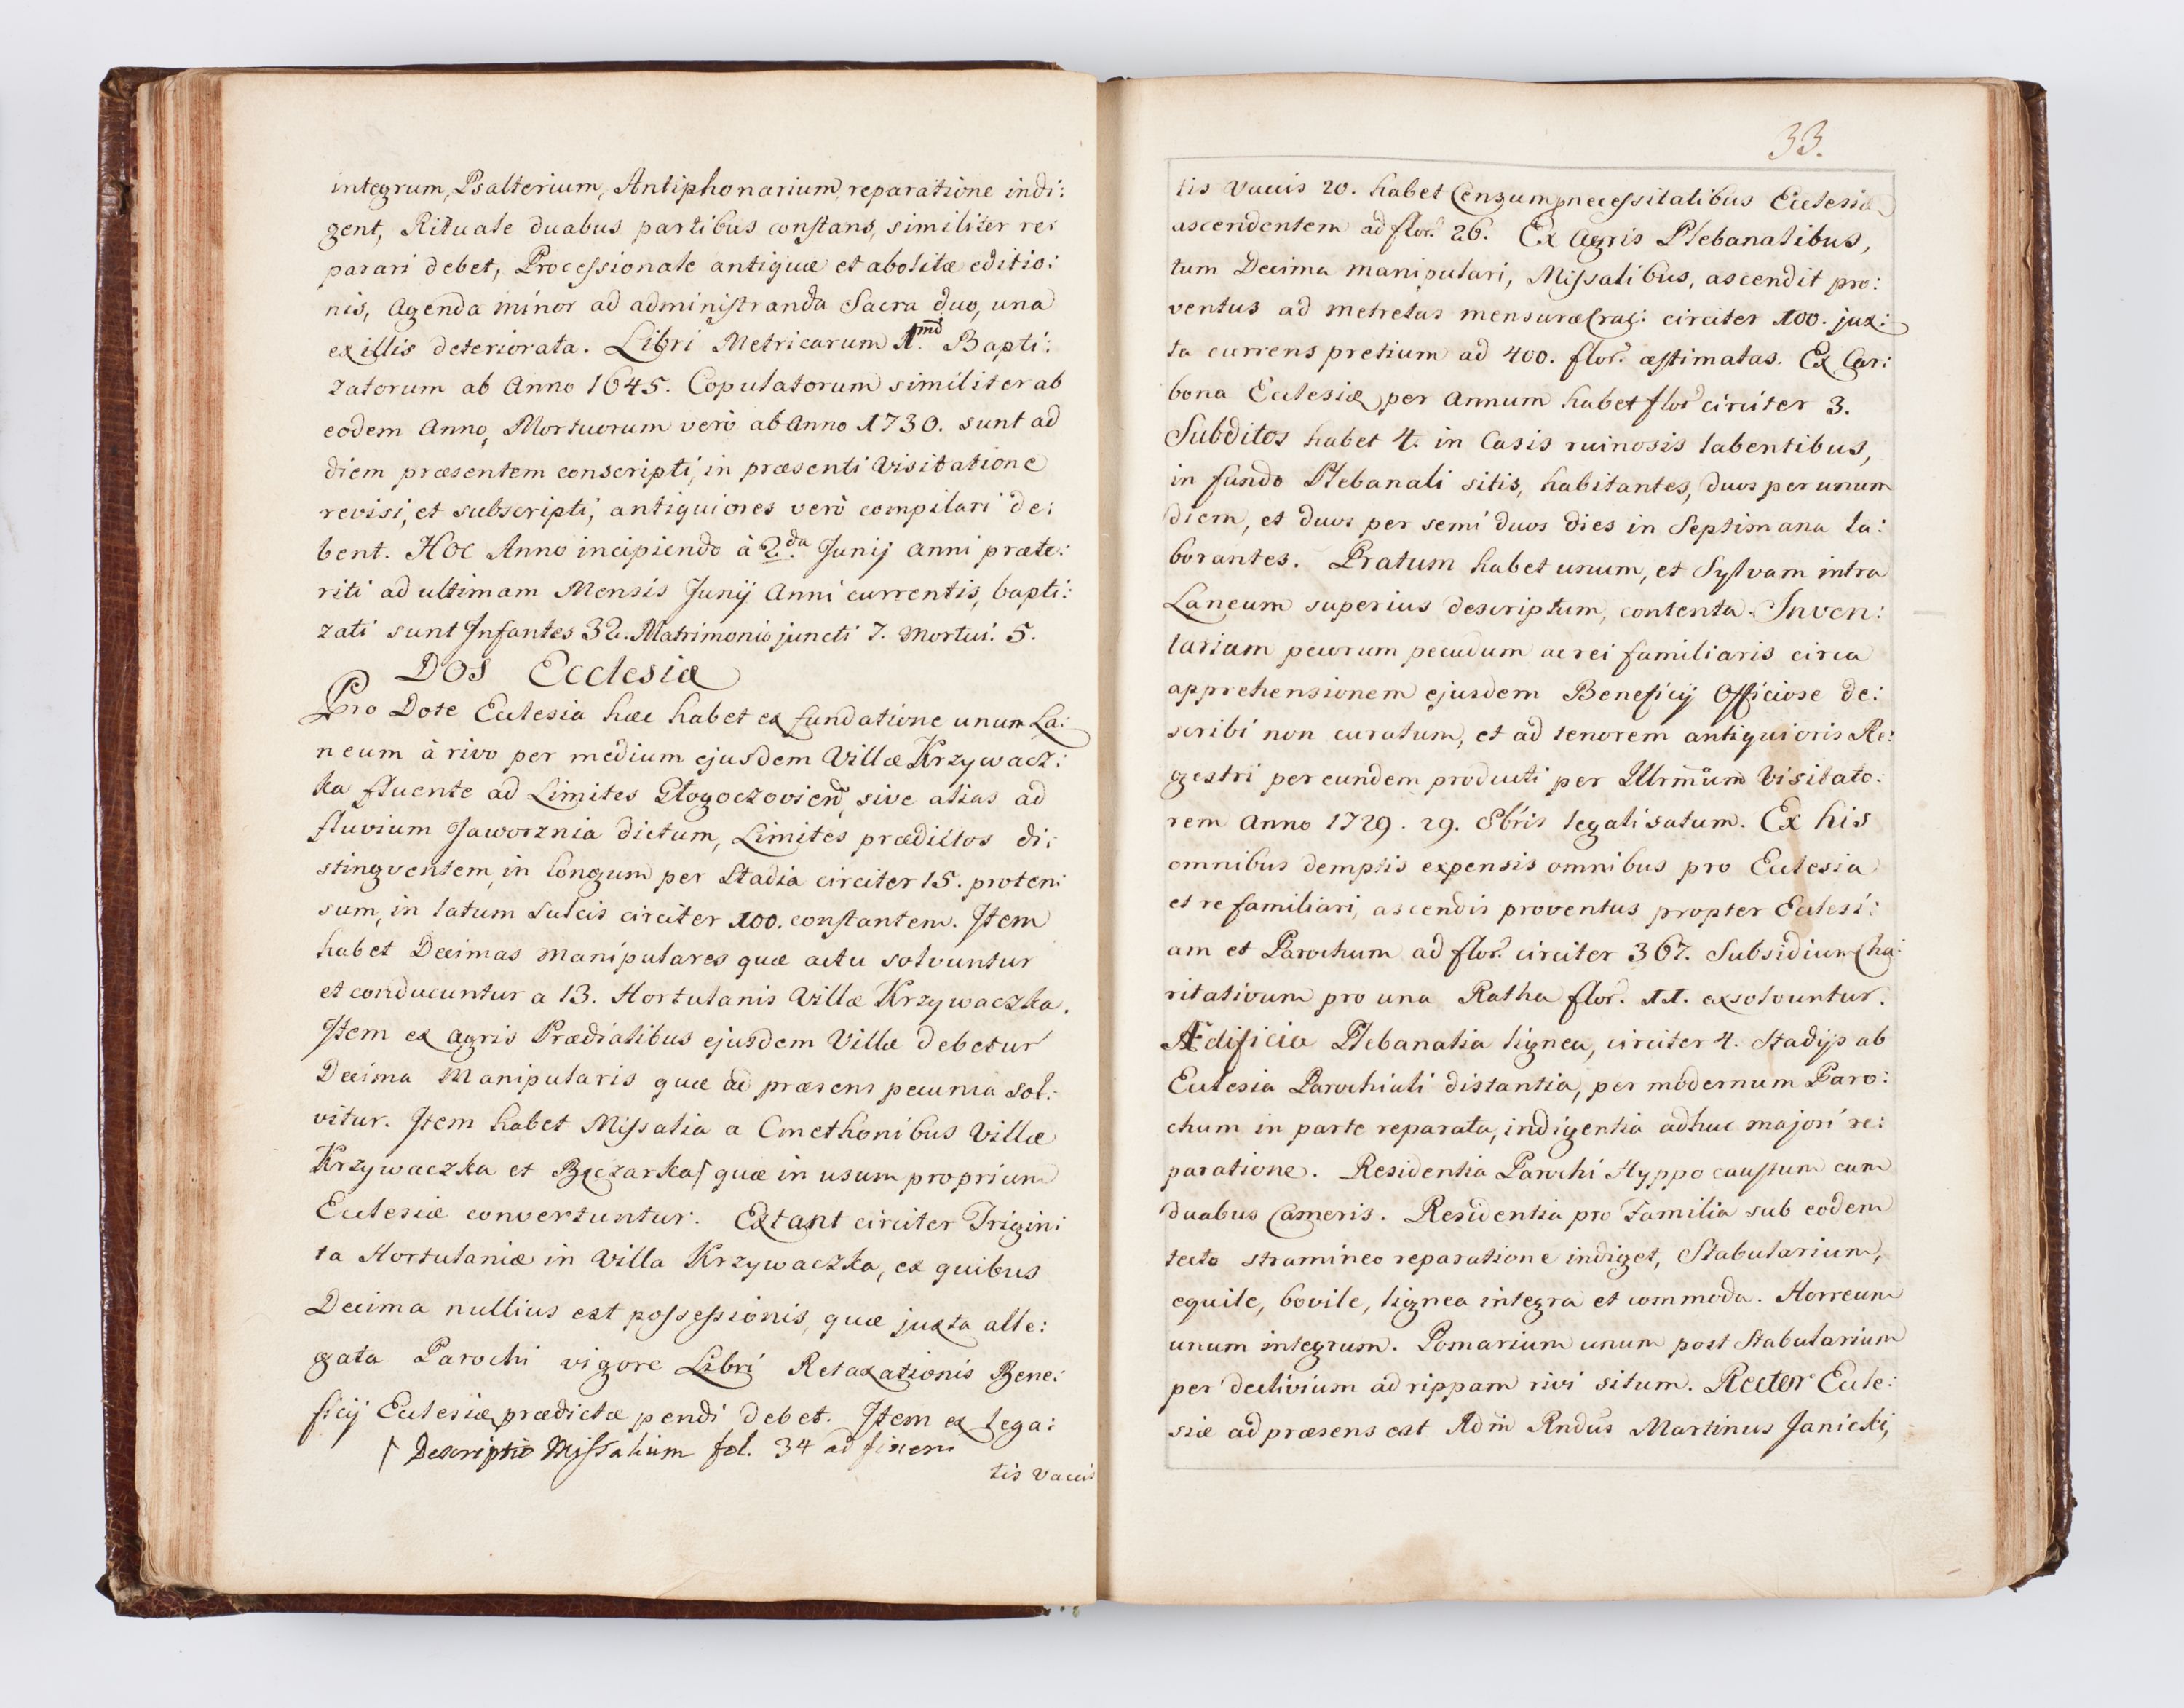 integrum, Psalterium, Antiphonarium, reparatione indi:
gent, Rituale duabus partibus constans, similiter re:
parari debet, Processionale antiquæ et abolitæ editio:
nis, Agenda minor ad administranda Sacra duo, una
ex illis deteriorata. Libri Metricarum 1md. Bapti:
zatorum ab Anno 1645. Copulatorum similiter ab
eodem Anno, Mortuorum verò ab Anno 1730. sunt ad
diem præsentem conscripti, in præsenti Visitatione
revisi, et subscripti, antiquiores verò compilari de:
bent. Hoc Anno incipiendo à 2da Junij Anni præte:
riti ad ultimam Mensis Junij Anni currentis, bapti:
zati sunt Infantes 32. Matrimonio juncti 7. Mortui. 5.
Dos Ecclesiæ
Pro Dote Ecclesia hæc habet ex fundatione unum La:
neum à rivo per medium ejusdem Villæ Krzywacz:
ka fluente ad Limites Głogoczovien, sive alias ad
fluvium Jaworznia dictum, Limites prædictos di:
stingventem, in longum per Stadia circiter 15. proten:
sum, in latum Sulcis circiter 100. constantem. Item
habet Decimas Manipulares quæ actu solvuntur
et conducuntur a 13. Hortulanis Villæ Krzywaczka.
Item ex Agris Prædialibus ejusdem Villæ debetur
Decima Manipularis quæ ad præsens pecunia sol:
vitur. Item habet Missalia a Cmethonibus Villæ
Krzywaczka et Bęczarka/ quæ in usum proprium
Ecclesiæ convertuntur. Extant circiter Trigin:
ta Hortulaniæ in Villa Krzywaczka, ex quibus
Decima nullius est possessionis, quæ juxta alle:
gata Parochi vigore Libri Retaxationis Bene:
ficij Ecclesiæ prædictæ pendi debet. Item ex Lega:
/ Descriptio Missalium fol. 34 ad finem
tis vacuis
33.
tis vacuis 20. habet Censum, necessitatibus Ecclesiæ
ascendentem ad flor. 26. Ex Agris Plebanalibus,
tum Decima manipulari, Missalibus, ascendit pro:
ventus ad metretas mensuræ Crac: circiter 100. jux:
ta currens pretium ad 400. flor. æstimatas. Ex Car:
bona Ecclesiæ per Annum habet flor circiter 3.
Subditos habet 4. in Casis ruinosis labentibus,
in fundo Plebanali sitis, habitantes, duos per unum
diem, et duos per semi duos dies in Septimana la:
borantes. Pratum habet unum, et Sylvam intra
Laneum superius descriptum, contenta. Inven:
tarium pecorum pecudum ac rei familiaris circa
apprehensionem ejusdem Beneficij Officiose de:
scribi non curatum, et ad tenorem antiquioris Re:
gestri per eundem producti per Illrmum Visitato:
rem Anno 1729. 29. 8bris legalisatum. Ex his
omnibus demptis expensis omnibus pro Ecclesia
et re familiari, ascendis proventus propter Ecclesi:
am et Parochum ad flor. circiter 367. Subsidium Cha:
ritativum pro una Ratha flor. 11. exsolvuntur.
Ædificia Plebanalia lignea, circiter 4. Stadijs ab
Ecclesia Parochiali distantia, per modernum Paro:
chum in parte reparata, indigentia adhuc majori re:
paratione. Residentia Parochi Hyppocaustum cum
duabus Cameris. Residentia pro Familia sub eodem
tecto stramineo reparatione indiget, Stabularium,
equile, bovile, lignea integra et commoda. Horreum
unum integrum. Pomarium unum post Stabularium
per declivium ad rippam rivi situm. Rector Eccle:
siæ ad præsens est Adm Rndus Martinus Janicki,